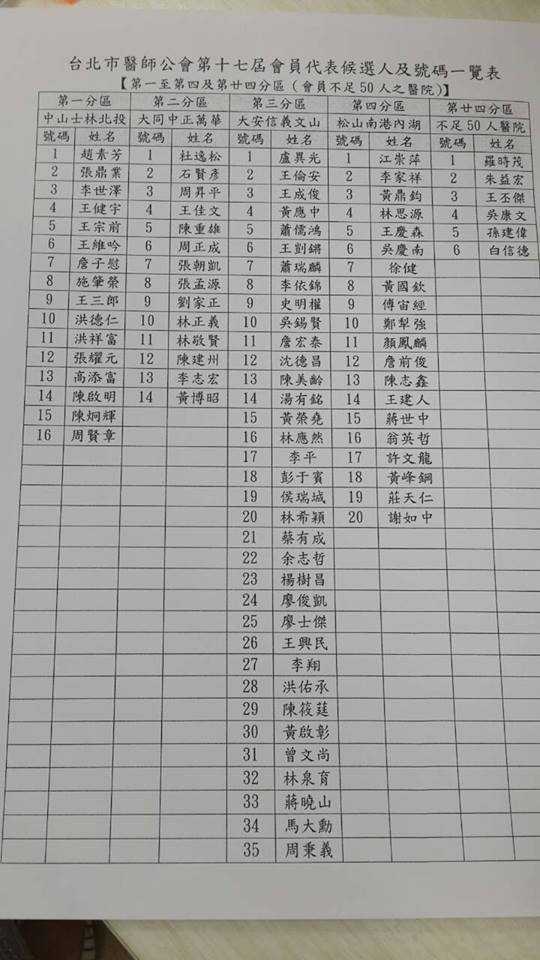 台北市醫師公會第十七屆會員代表候選人及號碼一覽表
【第一至第四及第廿四分區（會員不足50人之醫院）】
第一分區 第二分區 第三分區 第四分區 第廿四分區
中山士林北投 大同中正萬華 大安信義文山 松山南港內湖 不足50人醫院
號碼 姓名 號碼 姓名 號碼 姓名 號碼 姓名 號碼 姓名
1 趙素芳 1 杜逸松 1 盧異光 1 江崇萍 1 羅時茂
2 張鼎業 2 石賢彥 2 王倫安 2 李家祥 2 朱益宏
3 李世澤 3 周昇平 3 王成俊 3 黃鼎鈞 3 王丕傑
4 王健宇 4 王佳文 4 黃應中 4 林思源 4 吳康文
5 王宗前 5 陳重雄 5 蕭儒鴻 5 王慶森 5 孫建偉
6 王維吟 6 周正成 6 王剴鏘 6 吳慶南 6 白信德
7 詹子慰 7 張朝凱 7 蕭瑞麟 7 徐健
8 施肇榮 8 張孟源 8 李依錦 8 黃國欽
9 王三郎 9 劉家正 9 史明權 9 傅宙經
10 洪德仁 10 林正義 10 吳錫賢 10 鄭犁強
11 洪祥富 11 林敬賢 11 詹宏泰 11 顏鳳麟
12 張耀元 12 陳建州 12 沈德昌 12 詹前俊
13 高添富 13 李志宏 13 陳美齡 13 陳志鑫
14 陳啟明 14 黃博昭 14 湯有銘 14 王建人
15 陳炯輝 15 黃榮堯 15 蔣世中
16 周賢章 16 林應然 16 翁英哲
17 李平 17 許文龍
18 彭于賓 18 黃峰鋼
19 侯瑞城 19 莊天仁
20 林希穎 20 謝如中
21 蔡有成
22 余志哲
23 楊樹昌
24 廖俊凱
25 廖士傑
26 王興民
27 李翔
28 洪佑承
29 陳筱莛
30 黃啟彰
31 曾文尚
32 林泉育
33 蔣曉山
34 馬大勳
35 周秉義